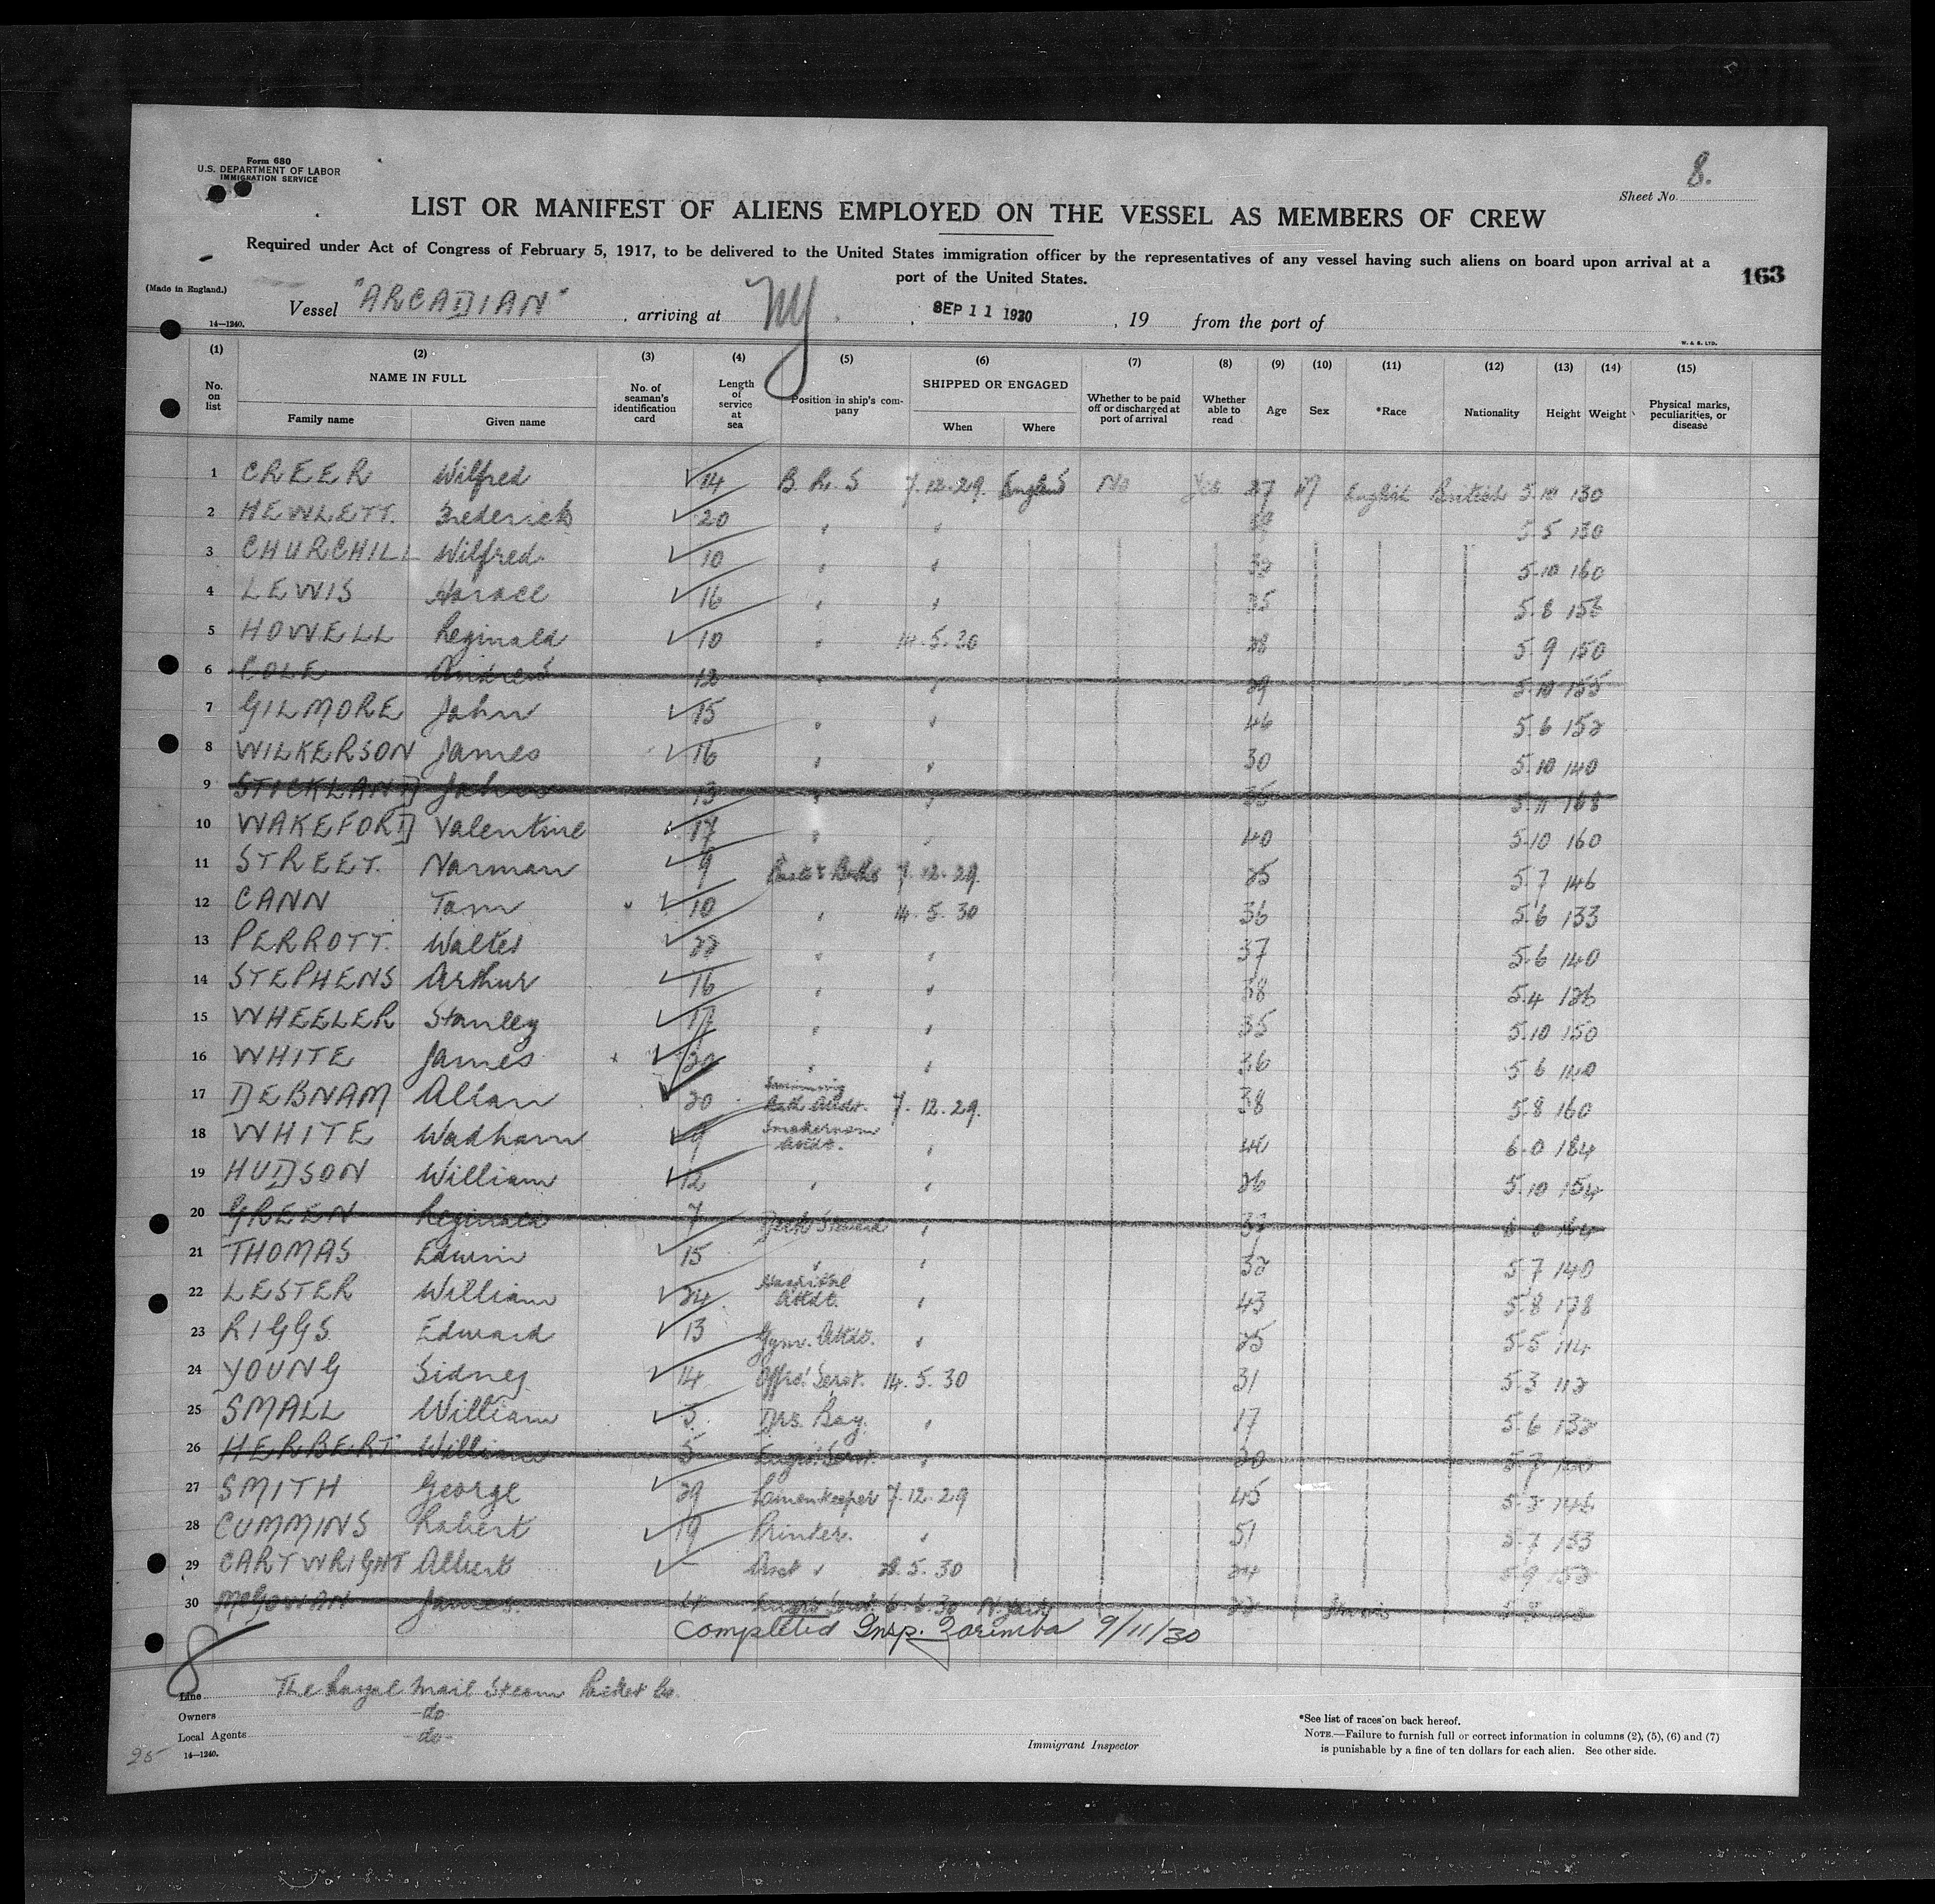 Form 680
U.S. DEPARTMENT OF LABOR
IMMIGRATION SERVICE
Sheet No. 8.
LIST OR MANIFEST OF ALIENS EMPLOYED ON THE VESSEL AS MEMBERS OF CREW
Required under Act of Congress of February 5, 1917, to be delivered to the United States immigration officer by the representatives of any vessel having such aliens on board upon arrival at a
port of the United States.
163
(Made in England.)
Vessel "ARCADIAN", arriving at NY, SEP 11 1930, 19 from the port of
14—1240.
W. & S. LTD.
(1) (2) (3) (4) (5) (6) (7) (8) (9) (10) (11) (12) (13) (14) (15)
No. on list NAME IN FULL Family name Given name No. of seaman's identification card Length of service at sea Position in ship's company SHIPPED OR ENGAGED When Where Whether to be paid off or discharged at port of arrival Whether able to read Age Sex *Race Nationality Height Weight Physical marks, peculiarities, or disease
1 CREER Wilfred 14 B. R. S 7.12.29. No Yes 27 M English British 5.10 130
2 HEWLETT. Frederick 20 " " 5 5 130
3 CHURCHILL Wilfred 10 " " 5.10 160
4 LEWIS Horace 16 " " 35 5.8 156
5 HOWELL Reginald 10 " 14.5.30 28 5 9 150
6 COLE Andrew 12 " " 29 5.10 155
7 GILMORE John 15 " " 46 5.6 152
8 WILKERSON James 16 " " 30 5.10 140
9 STICKLAND John 13 " " 35 5.11 168
10 WAKEFORD Valentine 17 " " 40 5.10 160
11 STREET. Norman 9 7.12.29. 25 5.7 146
12 CANN Tom 10 " 14.5.30 36 5.6 133
13 PERROTT. Walter 22 " " 37 5.6 140
14 STEPHENS Arthur 16 " " 38 5.4 126
15 WHEELER Stanley 17 " " 35 5.10 150
16 WHITE James 20 " " 36 5 6 140
17 DEBNAM Allan 20 Swimming Bath Attdt. 7.12.29. 38 5.8 160
18 WHITE Wadham 9 Smokeroom Attdt. " 6.0 184
19 HUDSON William 12 " " 26 5.10 154
20 GREEN Reginald 7 Deck Steward " 6 0
21 THOMAS Edwin 15 " " 32 5 7 140
22 LESTER William 24 Hospital Attdt. " 43 5.8 178
23 RIGGS. Edward 13 Gym. Attdt. " 25 5.5 114
24 YOUNG Sidney 14 Offrs' Servt. 14.5.30 31 5.3 112
25 SMALL William 3 " 17 5.6 132
26 HERBERT William 5 Engrs' Servt. " 20 5.7
27 SMITH George 29 Linenkeeper 7.12.29 45 146
28 CUMMINS Robert 19 Printer. " 51 5.7 133
29 CARTWRIGHT Albert – Asst " 28.5.30 24 5.9 152
30 McGOWAN James. 4 Engrs Servt. 6.6.30 N. York 22
Completed Insp. 9/11/30
8
Line The Royal Mail Steam Packet Co.
Owners -do-
Local Agents -do-
25
14—1240.
Immigrant Inspector
*See list of races on back hereof.
NOTE.—Failure to furnish full or correct information in columns (2), (5), (6) and (7)
is punishable by a fine of ten dollars for each alien. See other side.